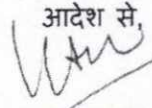 आदेश से,